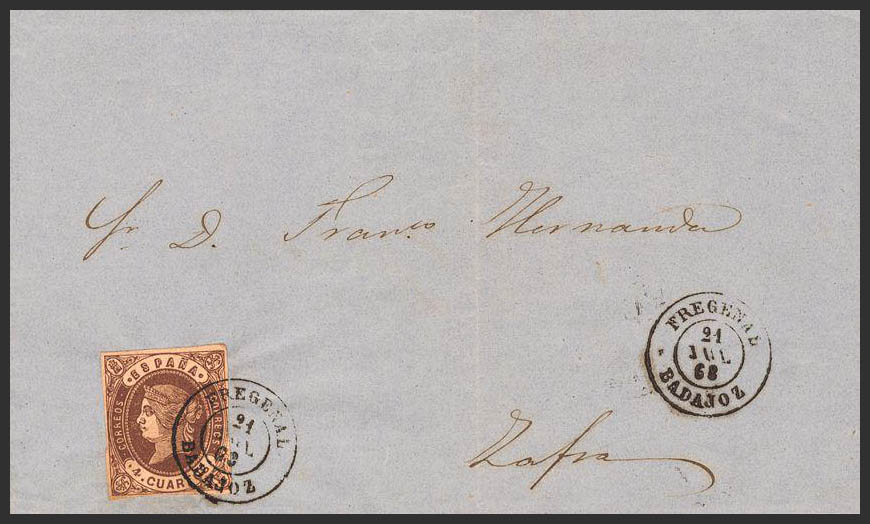 Sr. D. Franco Hernandez
FREGENAL
21
JUL
68
BADAJOZ
ESPAÑA
CORREOS
CORREOS
4 CUART
FREGENAL
21
JUL
BADAJOZ
Zafra